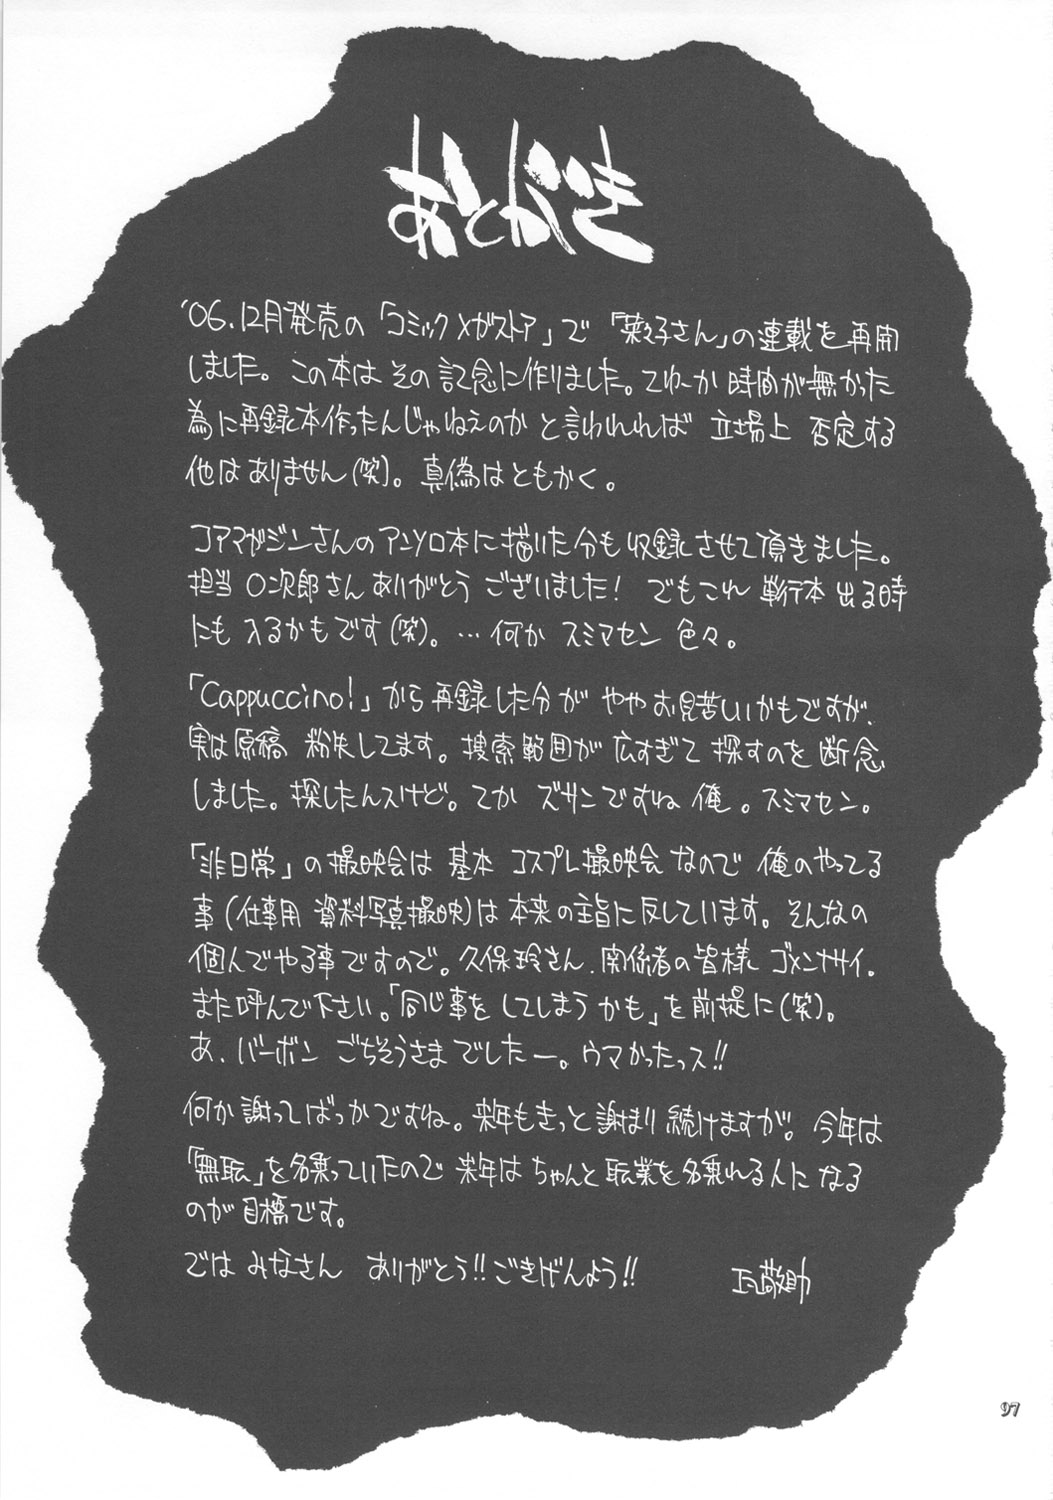 あとがき
'06.12月発売の「コミックメガストア」で「菜々子さん」の連載を再開
しました。この本はその記念に作りました。てゆーか時間が無かった
為に再録本作ったんじゃねえのかと言われれば 立場上 否定する
他はありません(笑)。真偽はともかく。
コアマガジンさんのアンソロ本に描いた分も収録させて頂きました。
担当〇次郎さんありがとうございました! でもこれ単行本出る時
にも入るかもです(笑)。…何かスミマセン色々。
「Cappuccino!」から再録した分がややお見苦しいかもですが、
実は原稿 粉失してます。捜索範囲が広すぎて探すのを断念
しました。探したんスけど。てかズサンですね俺。スミマセン。
「非日常」の撮映会は基本コスプレ撮映会なので俺のやってる
事(仕事用 資料写真撮映)は本来の主旨に反しています。そんなの
個人でやる事ですので。久保玲さん、関係者の皆様ゴメンナサイ。
また呼んで下さい。「同じ事をしてしまうかも」を前提に(笑)。
あ、バーボンごちそうさまでしたー。ウマかったっス!!
何か謝ってばっかですね。来年もきっと謝まり続けますが。今年は
「無転」を名乗っていたので来年はちゃんと転業を名乗れる人になる
のが目標です。
ではみなさん ありがとう!!ごきげんよう!!
97